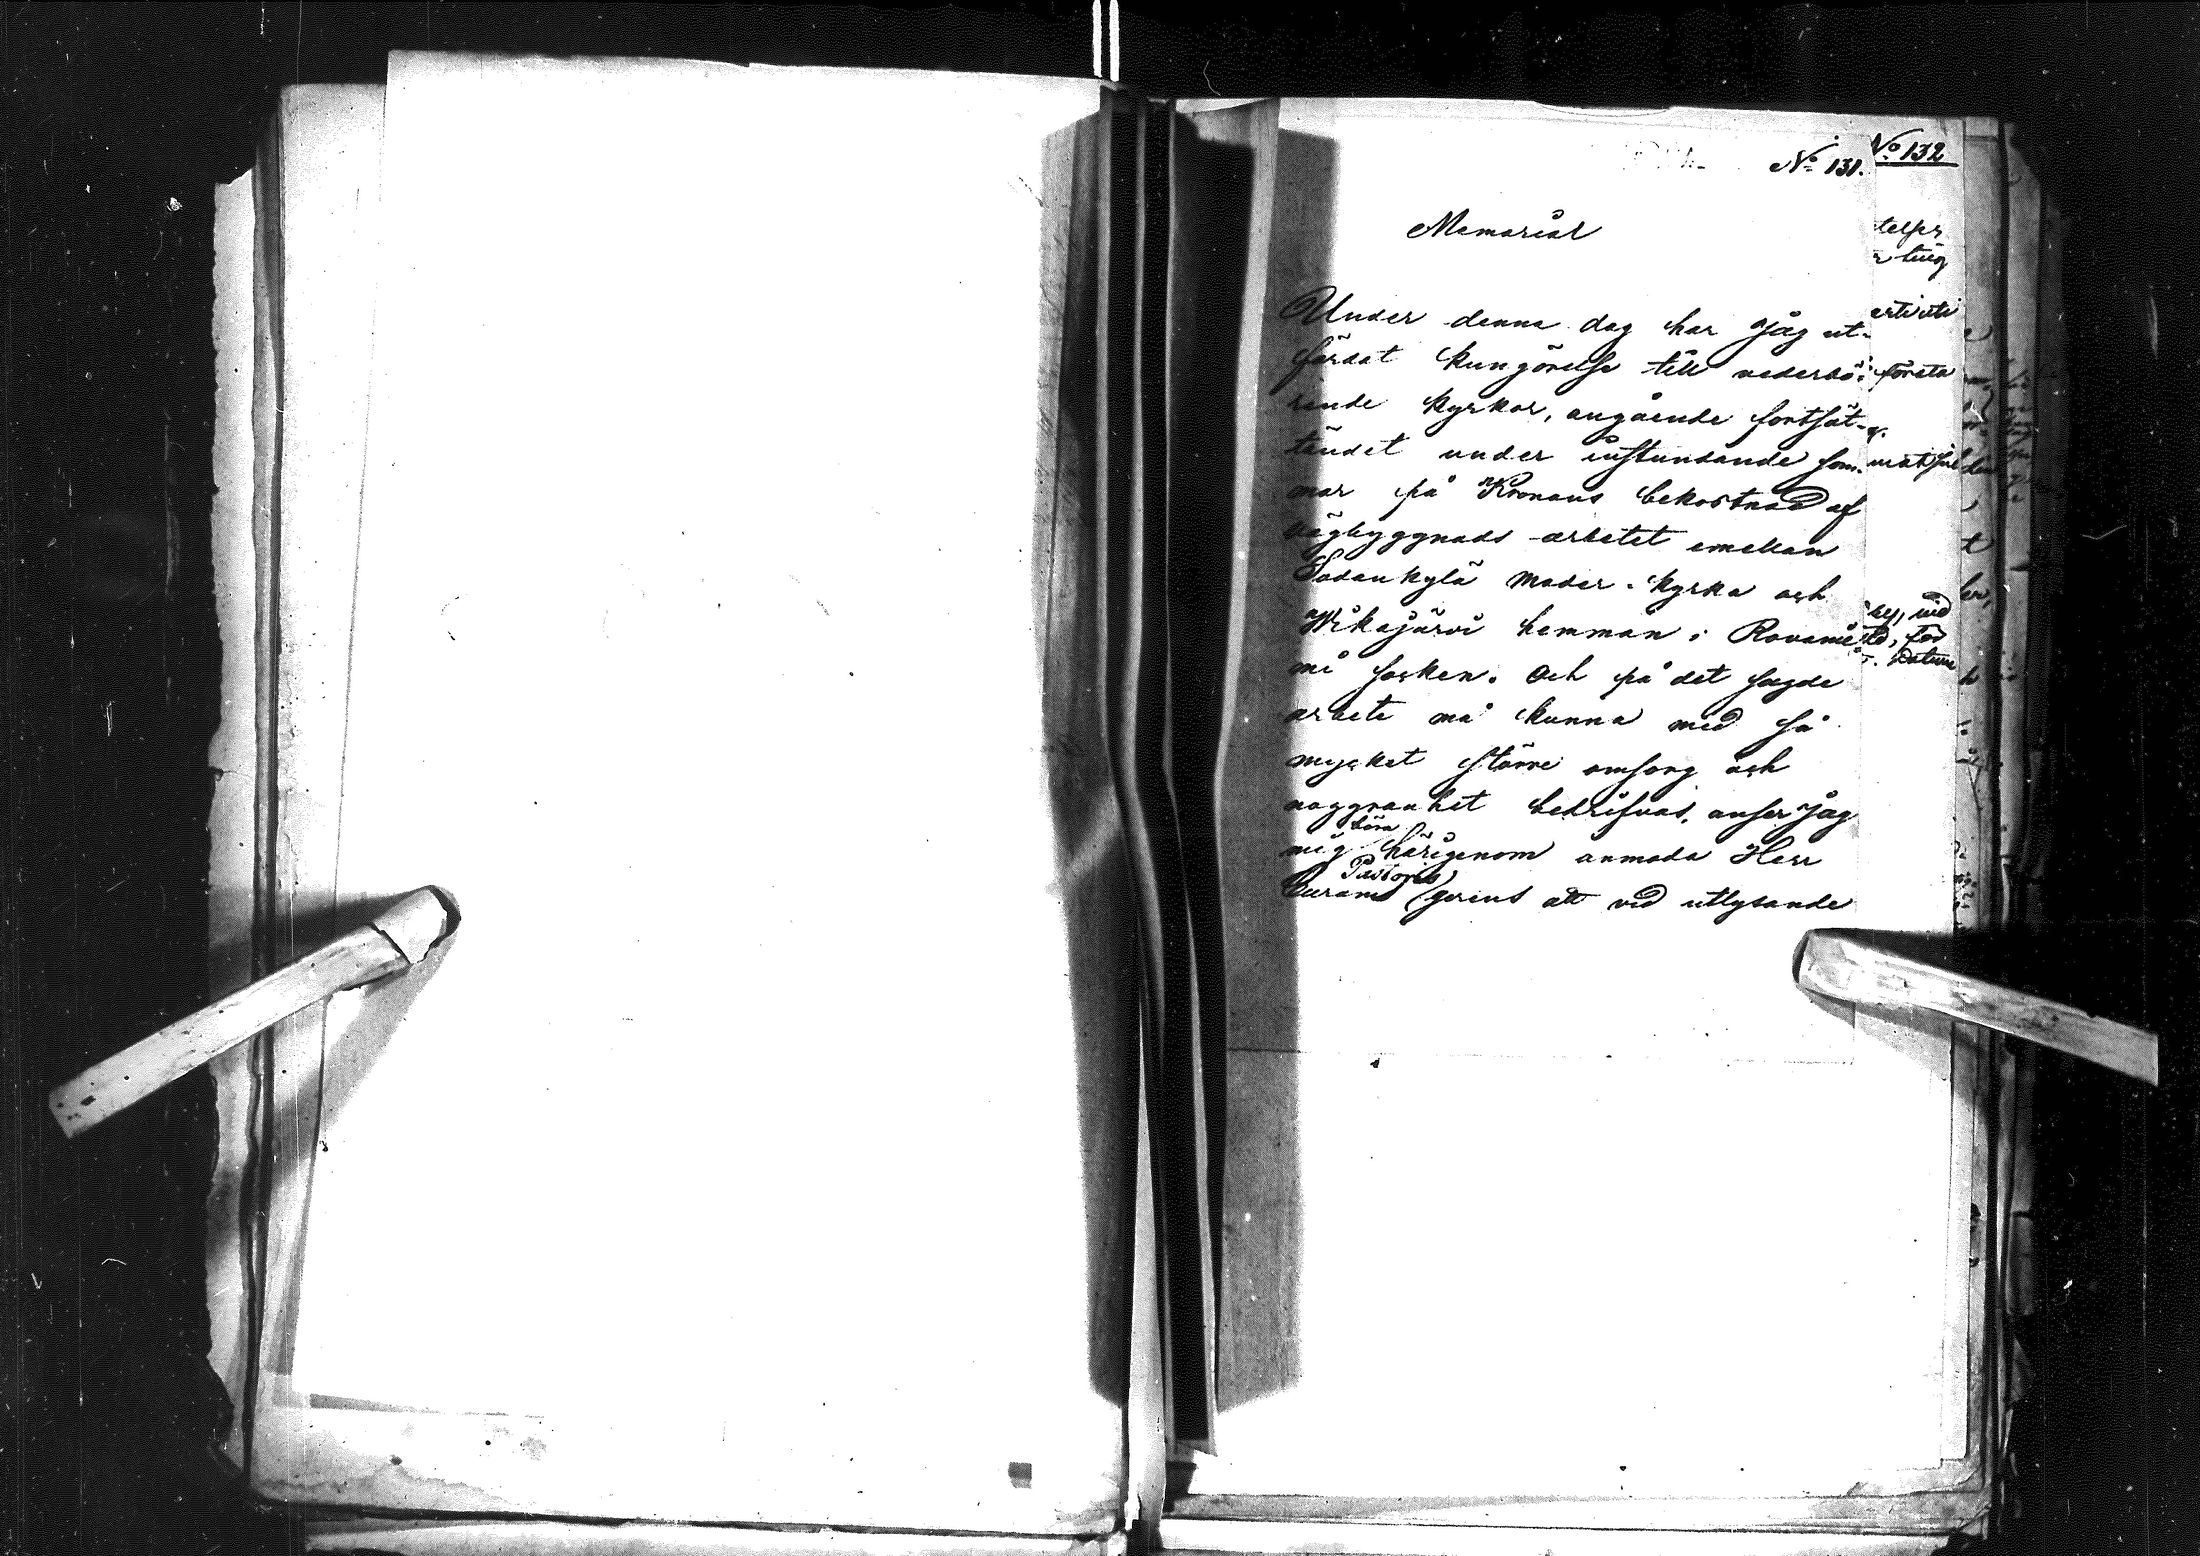 No 131.
Memorial
Under denna dag har Jag ut-
färdat kungörelse till vederbö-
rande kyrkor, angående fortsät-
tandet under instundande som-
mar på Kronans bekostnad af
vägbyggnads arbetet emellan
Sodankylä moder-kyrka och
Wikajärvi hemman i Rovanie-
mi socken. Och på det sagde
arbete må kunna med så
mycket större omsorg och
noggranhet bedrifvas, anser Jag
mig böra härigenom anmoda Herr
Curam Pastoris gerens att vid utlysande
No 132
första
vid
för